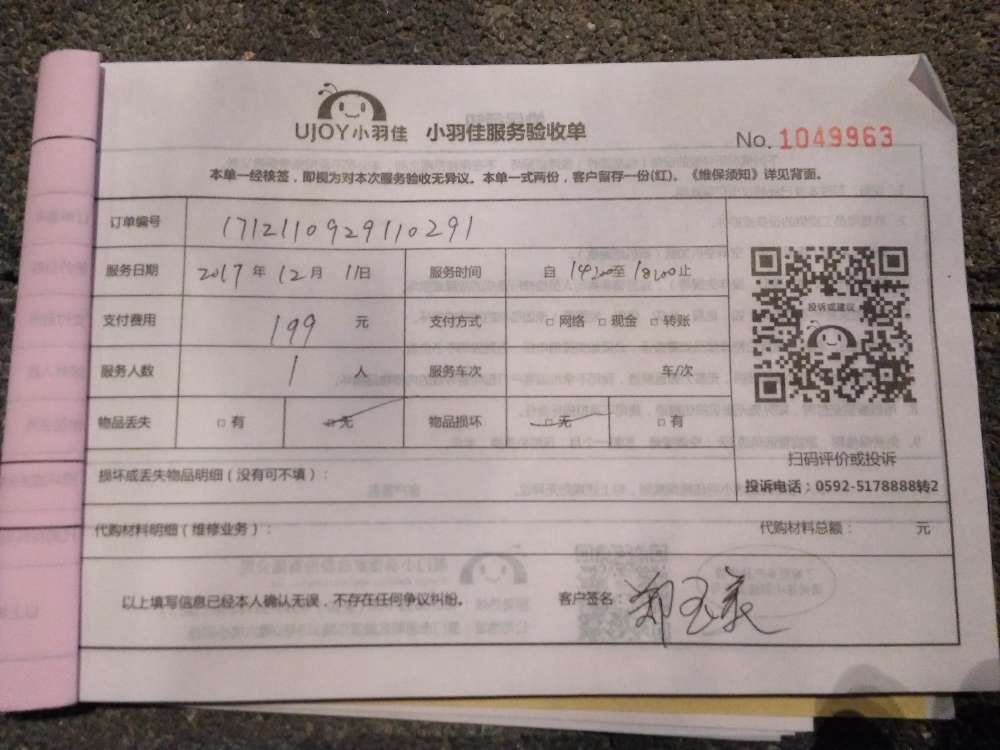 UJOY小羽佳 小羽佳服务验收单
No. 1049963
本单一经核签，即视为对本次服务验收无异议。本单一式两份，客户留存一份(红)。《维保须知》详见背面。
订单编号 1712110929110291
服务日期 2017 年 12 月 11日 服务时间 自 14:00至 18:00止
支付费用 199 元 支付方式 □ 网络 □ 现金 □ 转账
投诉或建议
服务人数 1 人 服务车次 车/次
物品丢失 □ 有 □ 无 物品损坏 □ 无 □ 有
扫码评价或投诉
损坏或丢失物品明细（没有可不填）：
投诉电话：0592-5178888转2
代购材料明细（维修业务）： 代购材料总额： 元
以上填写信息已经本人确认无误，不存在任何争议纠纷。 客户签名：郑玉美